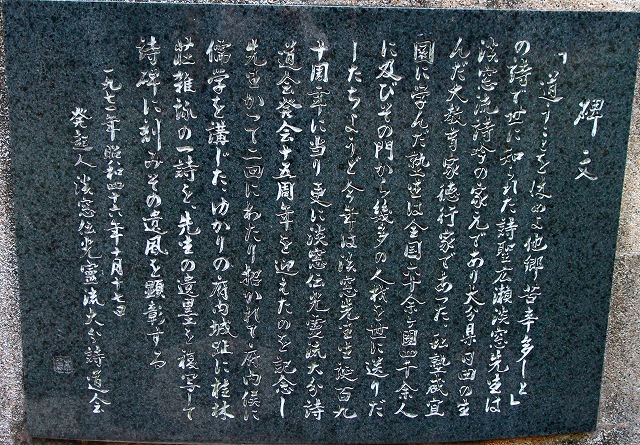 碑文
「道うことを休めよ他郷苦辛多しと」
の詩で世に知られた詩聖広瀬淡窓先生は
淡窓流詩吟の家元であり大分県日田の生
んだ大教育家徳行家であった 私塾咸宜
園に学んだ塾生は全国六十余ヶ国四千余人
に及びその門から幾多の人材を世に送りだ
したちょうど今年は淡窓先生生誕百九
十周年に当り更に淡窓伝光霊流大分詩
道会発会十五周年を迎えたのを記念し
先生かつて二回にわたり招かれて府内侯に
儒学を講じたゆかりの府内城址に桂林
荘雑詠の一詩を先生の遺墨を複写して
詩碑に刻みその遺風を顕彰する
一九七一年昭和四十六年十月十七日
発起人 淡窓伝光霊流大分詩道会